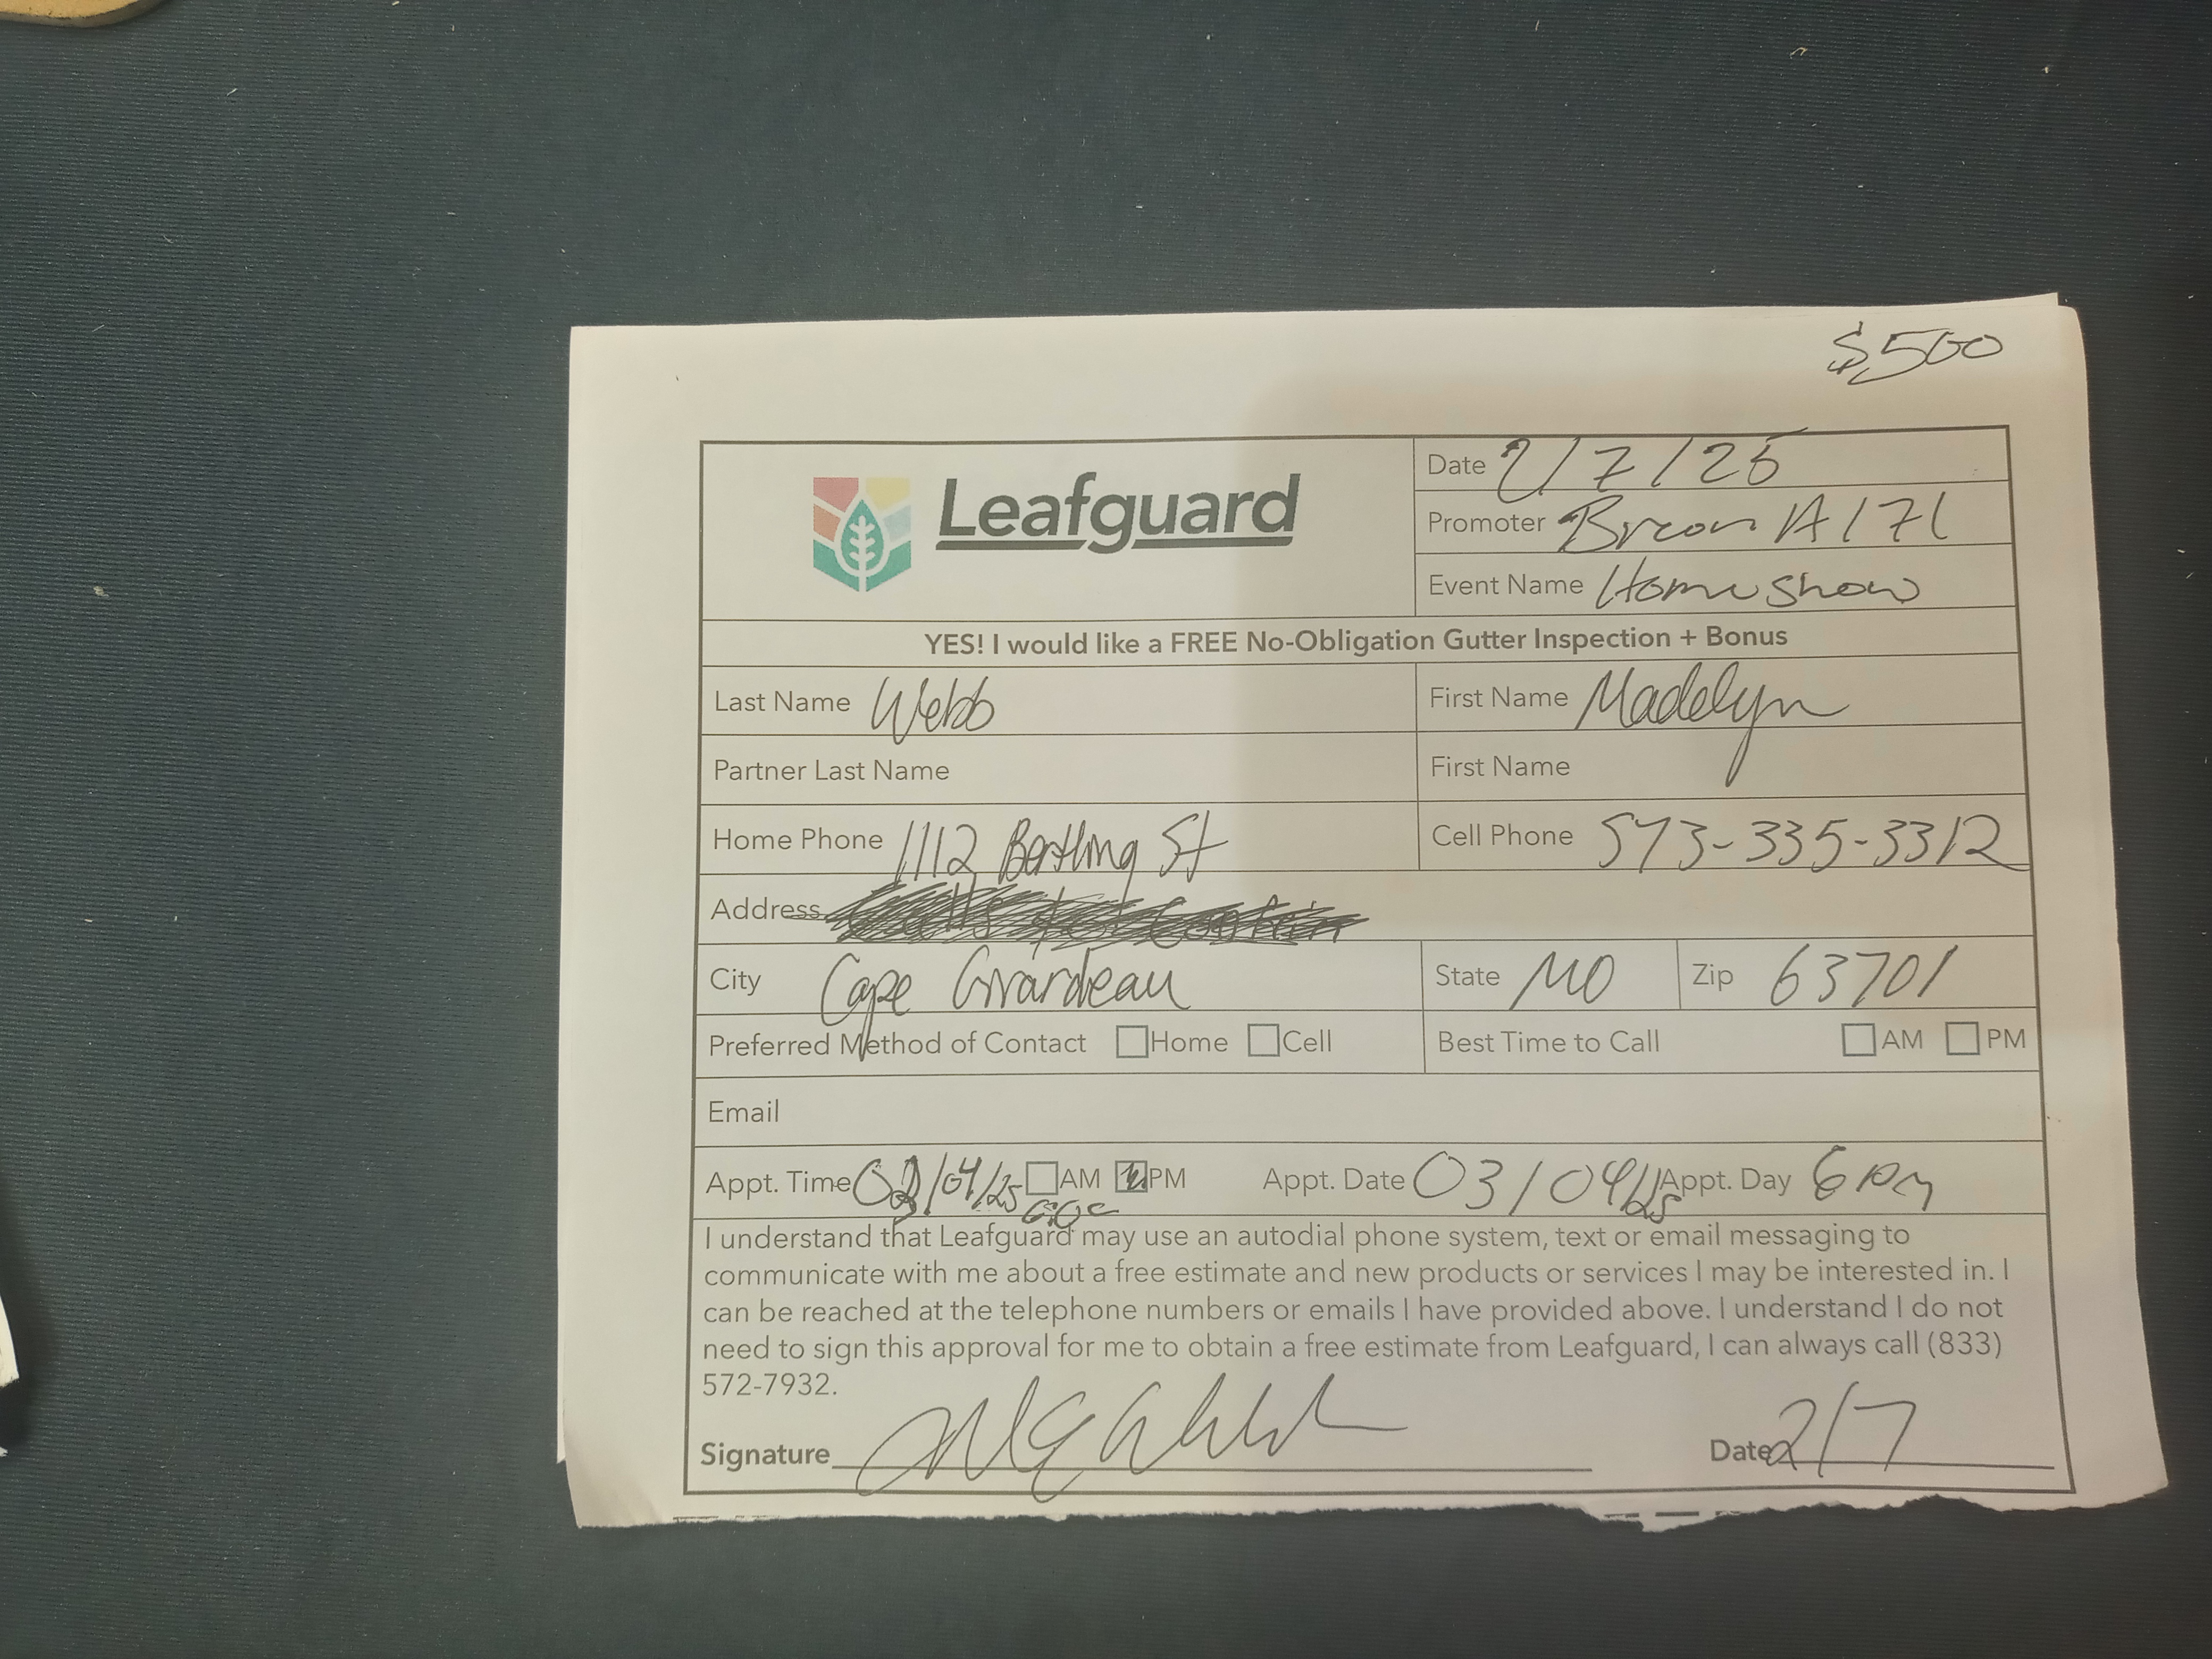 $500
Leafguard
Date 2/7/26
Promoter 1A171
Event Name Home Show
YES! I would like a FREE No-Obligation Gutter Inspection + Bonus
Last Name Webb First Name Madelyn
Partner Last Name First Name
Home Phone 1112 St Cell Phone 573-335-3312
Address
City Cape Girardeau State MO Zip 63701
Preferred Method of Contact Home Cell Best Time to Call AM PM
Email
Appt. Time AM PM Appt. Date 03/04/ Appt. Day
I understand that Leafguard may use an autodial phone system, text or email messaging to
communicate with me about a free estimate and new products or services I may be interested in. I
can be reached at the telephone numbers or emails I have provided above. I understand I do not
need to sign this approval for me to obtain a free estimate from Leafguard, I can always call (833)
572-7932.
Signature Date 2/7